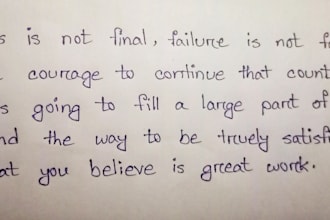 s is not final, failure is not f
courage to continue that count
s going to fill a large part of
nd the way to be truely satisfi
at you believe is great work.